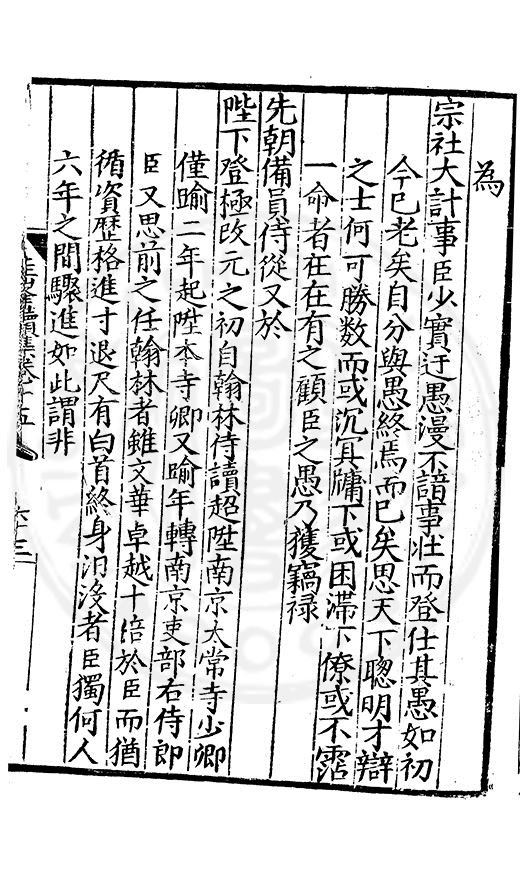 為
宗社大計事臣少實迂愚漫不諳事壯而登仕其愚如初
今已老矣自分與愚終焉而已矣思天下聰明才辯
之士何可勝数而或沉冥牖下或困滞下僚或不霑
一命者在在有之顧臣之愚乃獲竊禄
先朝備員侍從又於
陛下登極改元之初自翰林侍讀超陞南京太常寺少卿
僅踰二年起陞本寺卿又踰年轉南京吏部右侍郎
臣又思前之任翰林者雖文華卓越十倍於臣而猶
循資歷格進寸退尺有白首終身汨沒者臣獨何人
六年之間驟進如此謂非
六十三